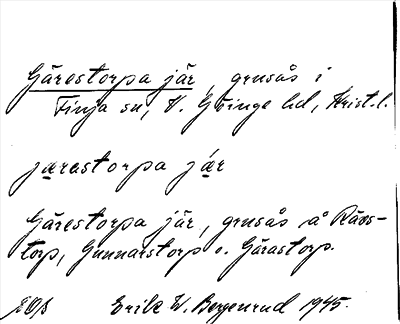 Gärestorpa jär, grusås i
Finja sn, V. Göinge hd, Krist. l.
järastorpa jär
Gärestorpa jär, grusås å Räus-
torp, Gunnarstorp o. Gärastorp.
Erik W. Bergenrud 1945.